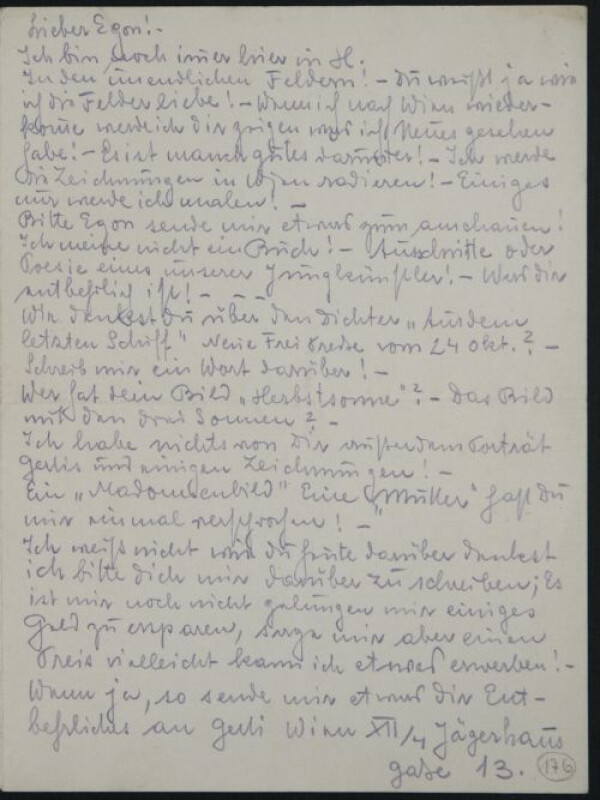 Lieber Egon!-
Ich bin noch imer hier in H.
In den unendlichen Feldern! - Du weißt ja wie
ich die Felder liebe! - Wenn ich nach Wien wieder-
kome werde ich dir zeigen was ich Neues gesehen
habe! - Es ist manch gutes darunter! - Ich werde
die Zeichnungen in Wien radieren! - Einiges
nur werde ich malen! -
Bitte Egon sende mir etwas zum anschauen!
Ich meine nicht ein Buch! - Ausschnitte oder
Poesie eines unserer Jungkünstler! - Was dir
entbehrlich ist! - - -
Wie denkst Du über den Dichter "Aus dem
letzten Schiff" Neue Frei Presse vom 24 Okt.? -
Schreib mir ein Wort darüber! -
Wer hat dein Bild "Herbstsonne"? - Das Bild
mit den drei Sonnen? -
Ich habe nichts von Dir außer dem Porträt
Gertis und einigen Zeichnungen! -
Ein "Madonnenbild" Eine "Mutter" hast Du
mir einmal versprochen! -
Ich weiß nicht wie du heute darüber denkst
ich bitte Dich mir darüber zu schreiben; Es
ist mir noch nicht gelungen mir einiges
Geld zu ersparen, sage mir aber einen
Preis vielleicht kann ich etwas erwerben! -
Wenn ja, so sende mir etwas dir Ent-
behrliches an Gerti Wien XII/4 Jägerhaus
gasse 13.
176